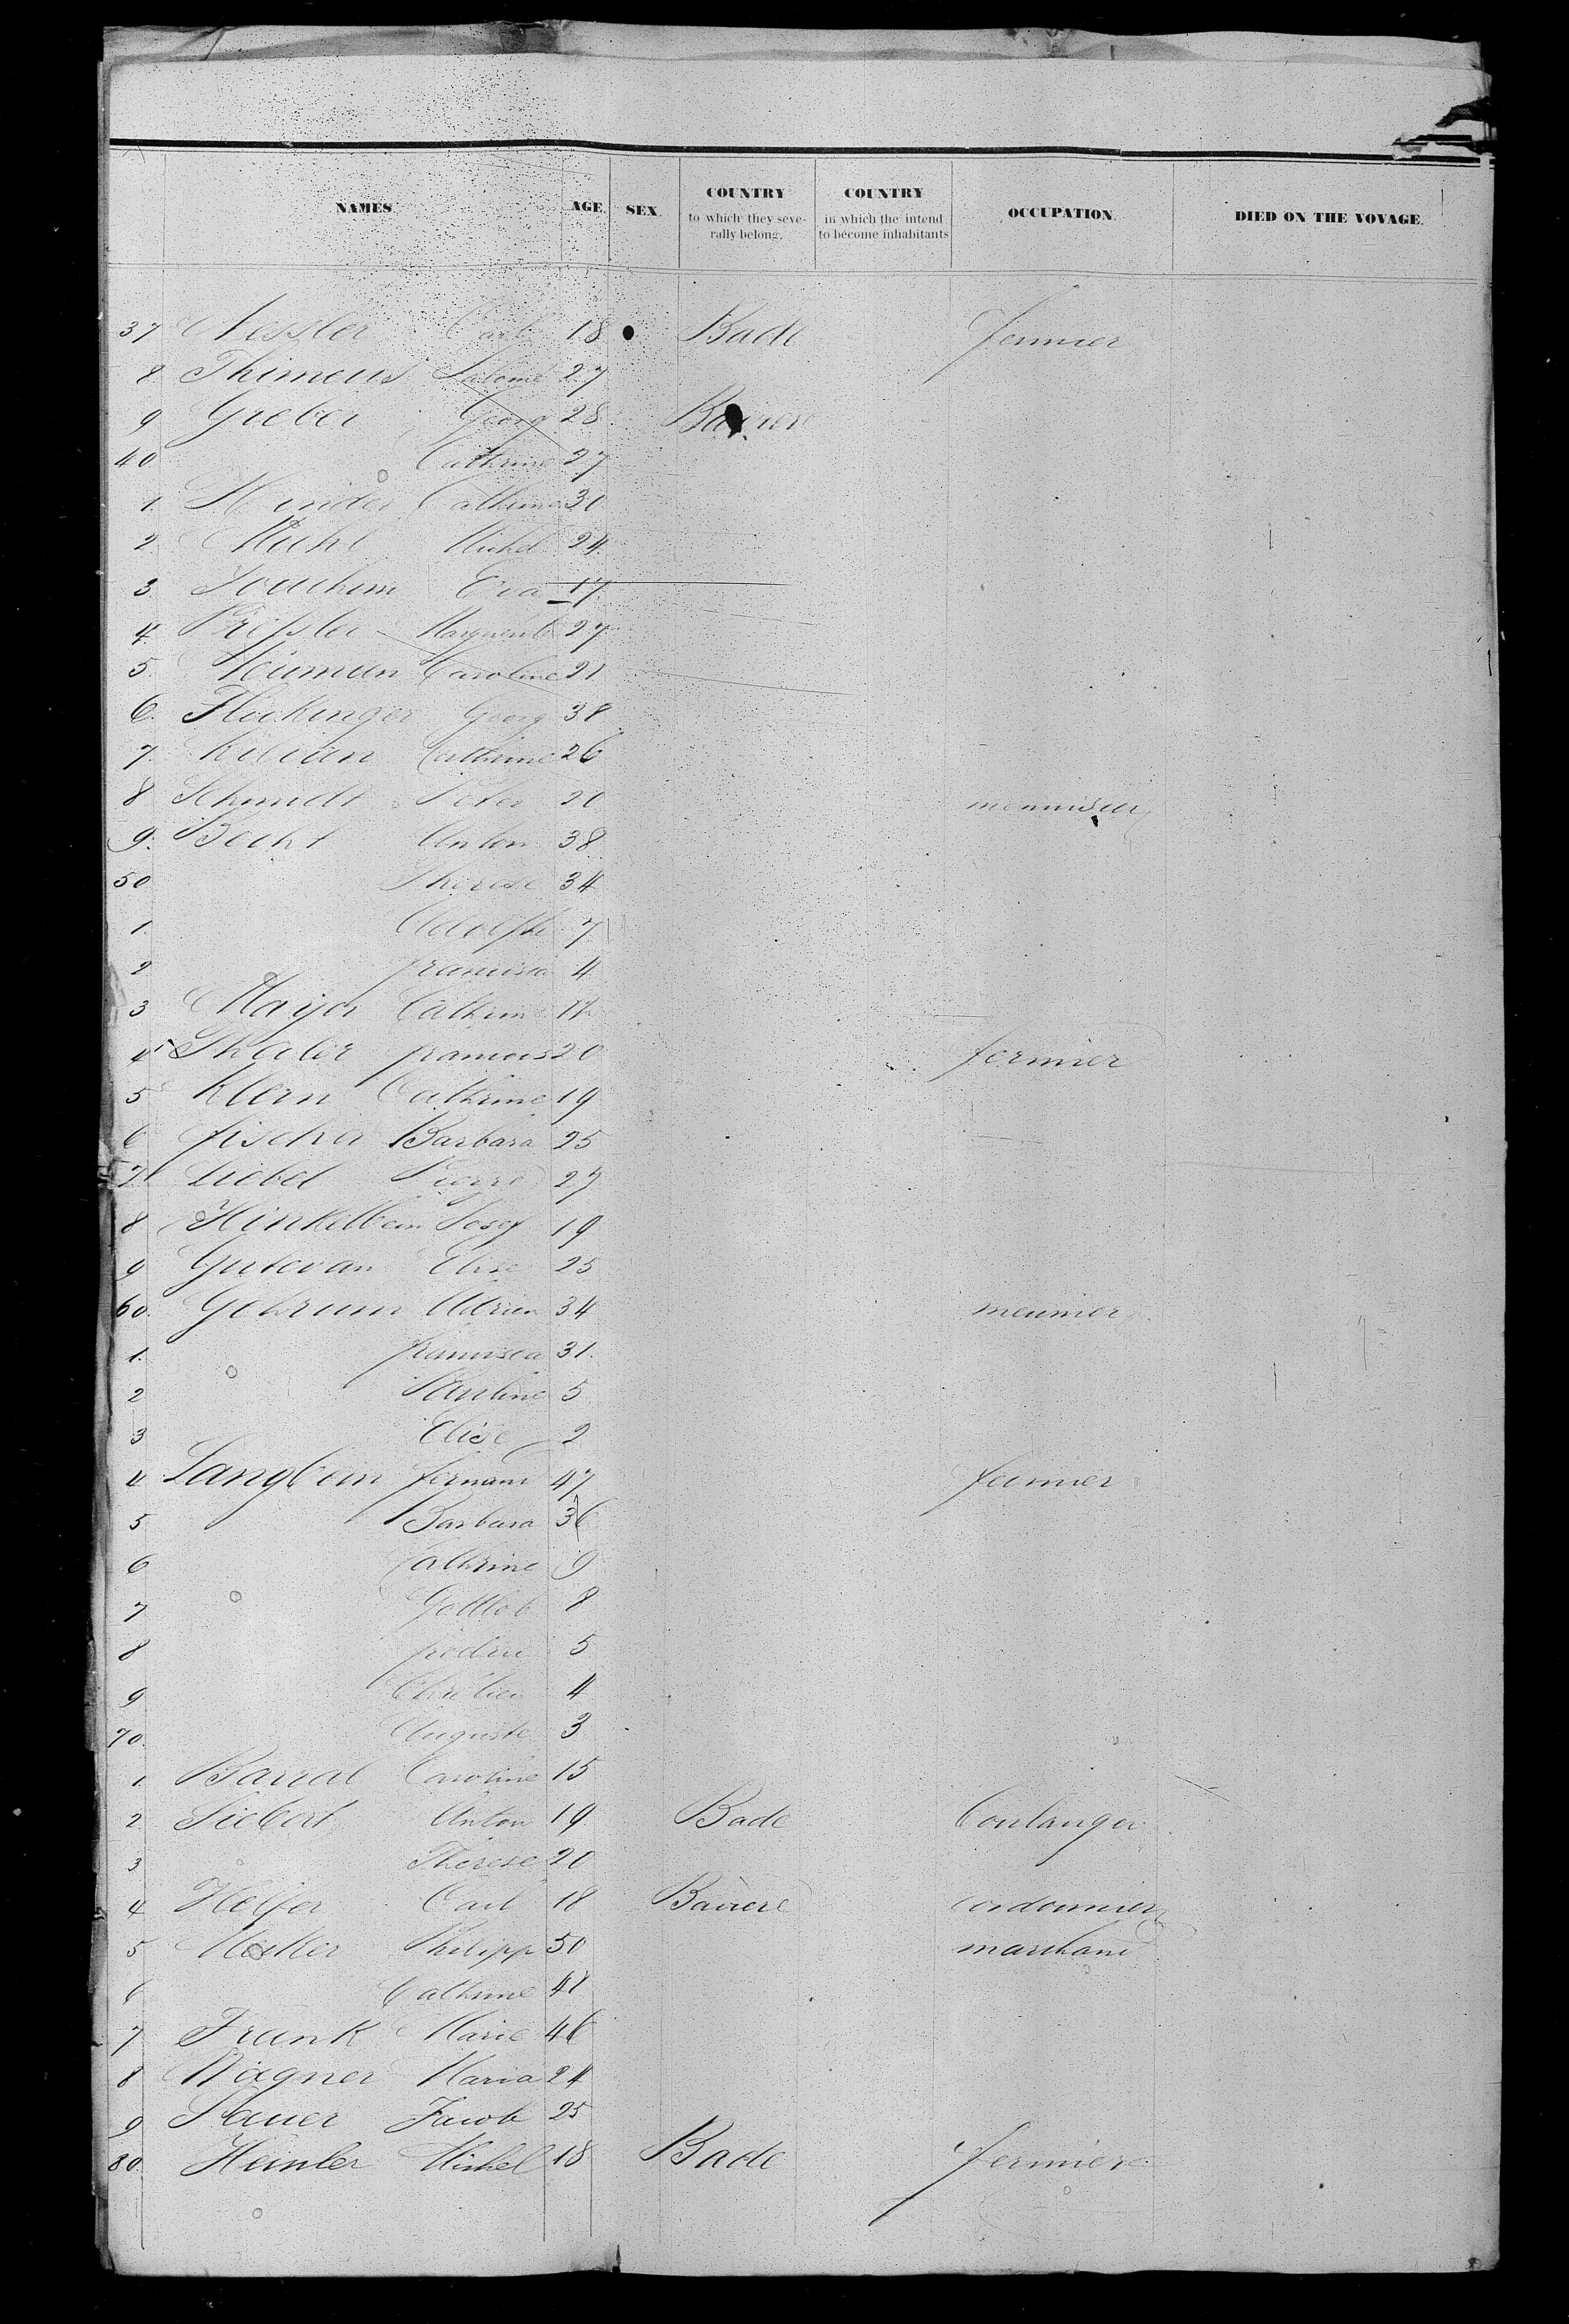 NAMES AGE. SEX. COUNTRY to which they severally belong. COUNTRY in which the intend to become inhabitants OCCUPATION. DIED ON THE VOYAGE.
37 Nessler Carl 18 Bade fermier
8 Thimeus Salome 27
9 Greber Georg 28 Baviere
40 Cathrine 27
1. Cathrine 30
2 Muhl Michel 24
3. Joachim Eva 17
4. Marguerite 27
5. Neuman Caroline 21
6. Flickinger Georg 38
7. Kilian Cathrine 26
8 Schmidt Peter 20 menuisier
9. Becht Anton 38
50 Therese 34
1. Adolph 7
2 francisca 4
3 Mayer Cathrine
4 Thaler francois 20 fermier
5 Klern Cathrine 19
6 fischer Barbara 25
7 Liebel Pierre 27
8 Hinkelbein Josef 19
9 Gutevan Elise 25
60. Gehrum Adrien 34 meunier
1. francisca 31.
2 Pauline 5
3 Elise 2
4 Langbein fernand 47 fermier
5 Barbara 36
6 Cathrine 9
7 Gottlob 8
8 5
9 Chretien 4
70. Auguste 3
1. Barral Caroline 15
2 Siebert Anton 19 Bade boulanger
3 Therese 20
4 Helfer Carl 18 Baviere cordonnier
5 Philipp 50 marchand
6 Cathrine 48
7 Frank Marie 46
8 Wagner Maria 24
9 Sauer Jacob 25
80. Heinler Michel 18 Bade fermier